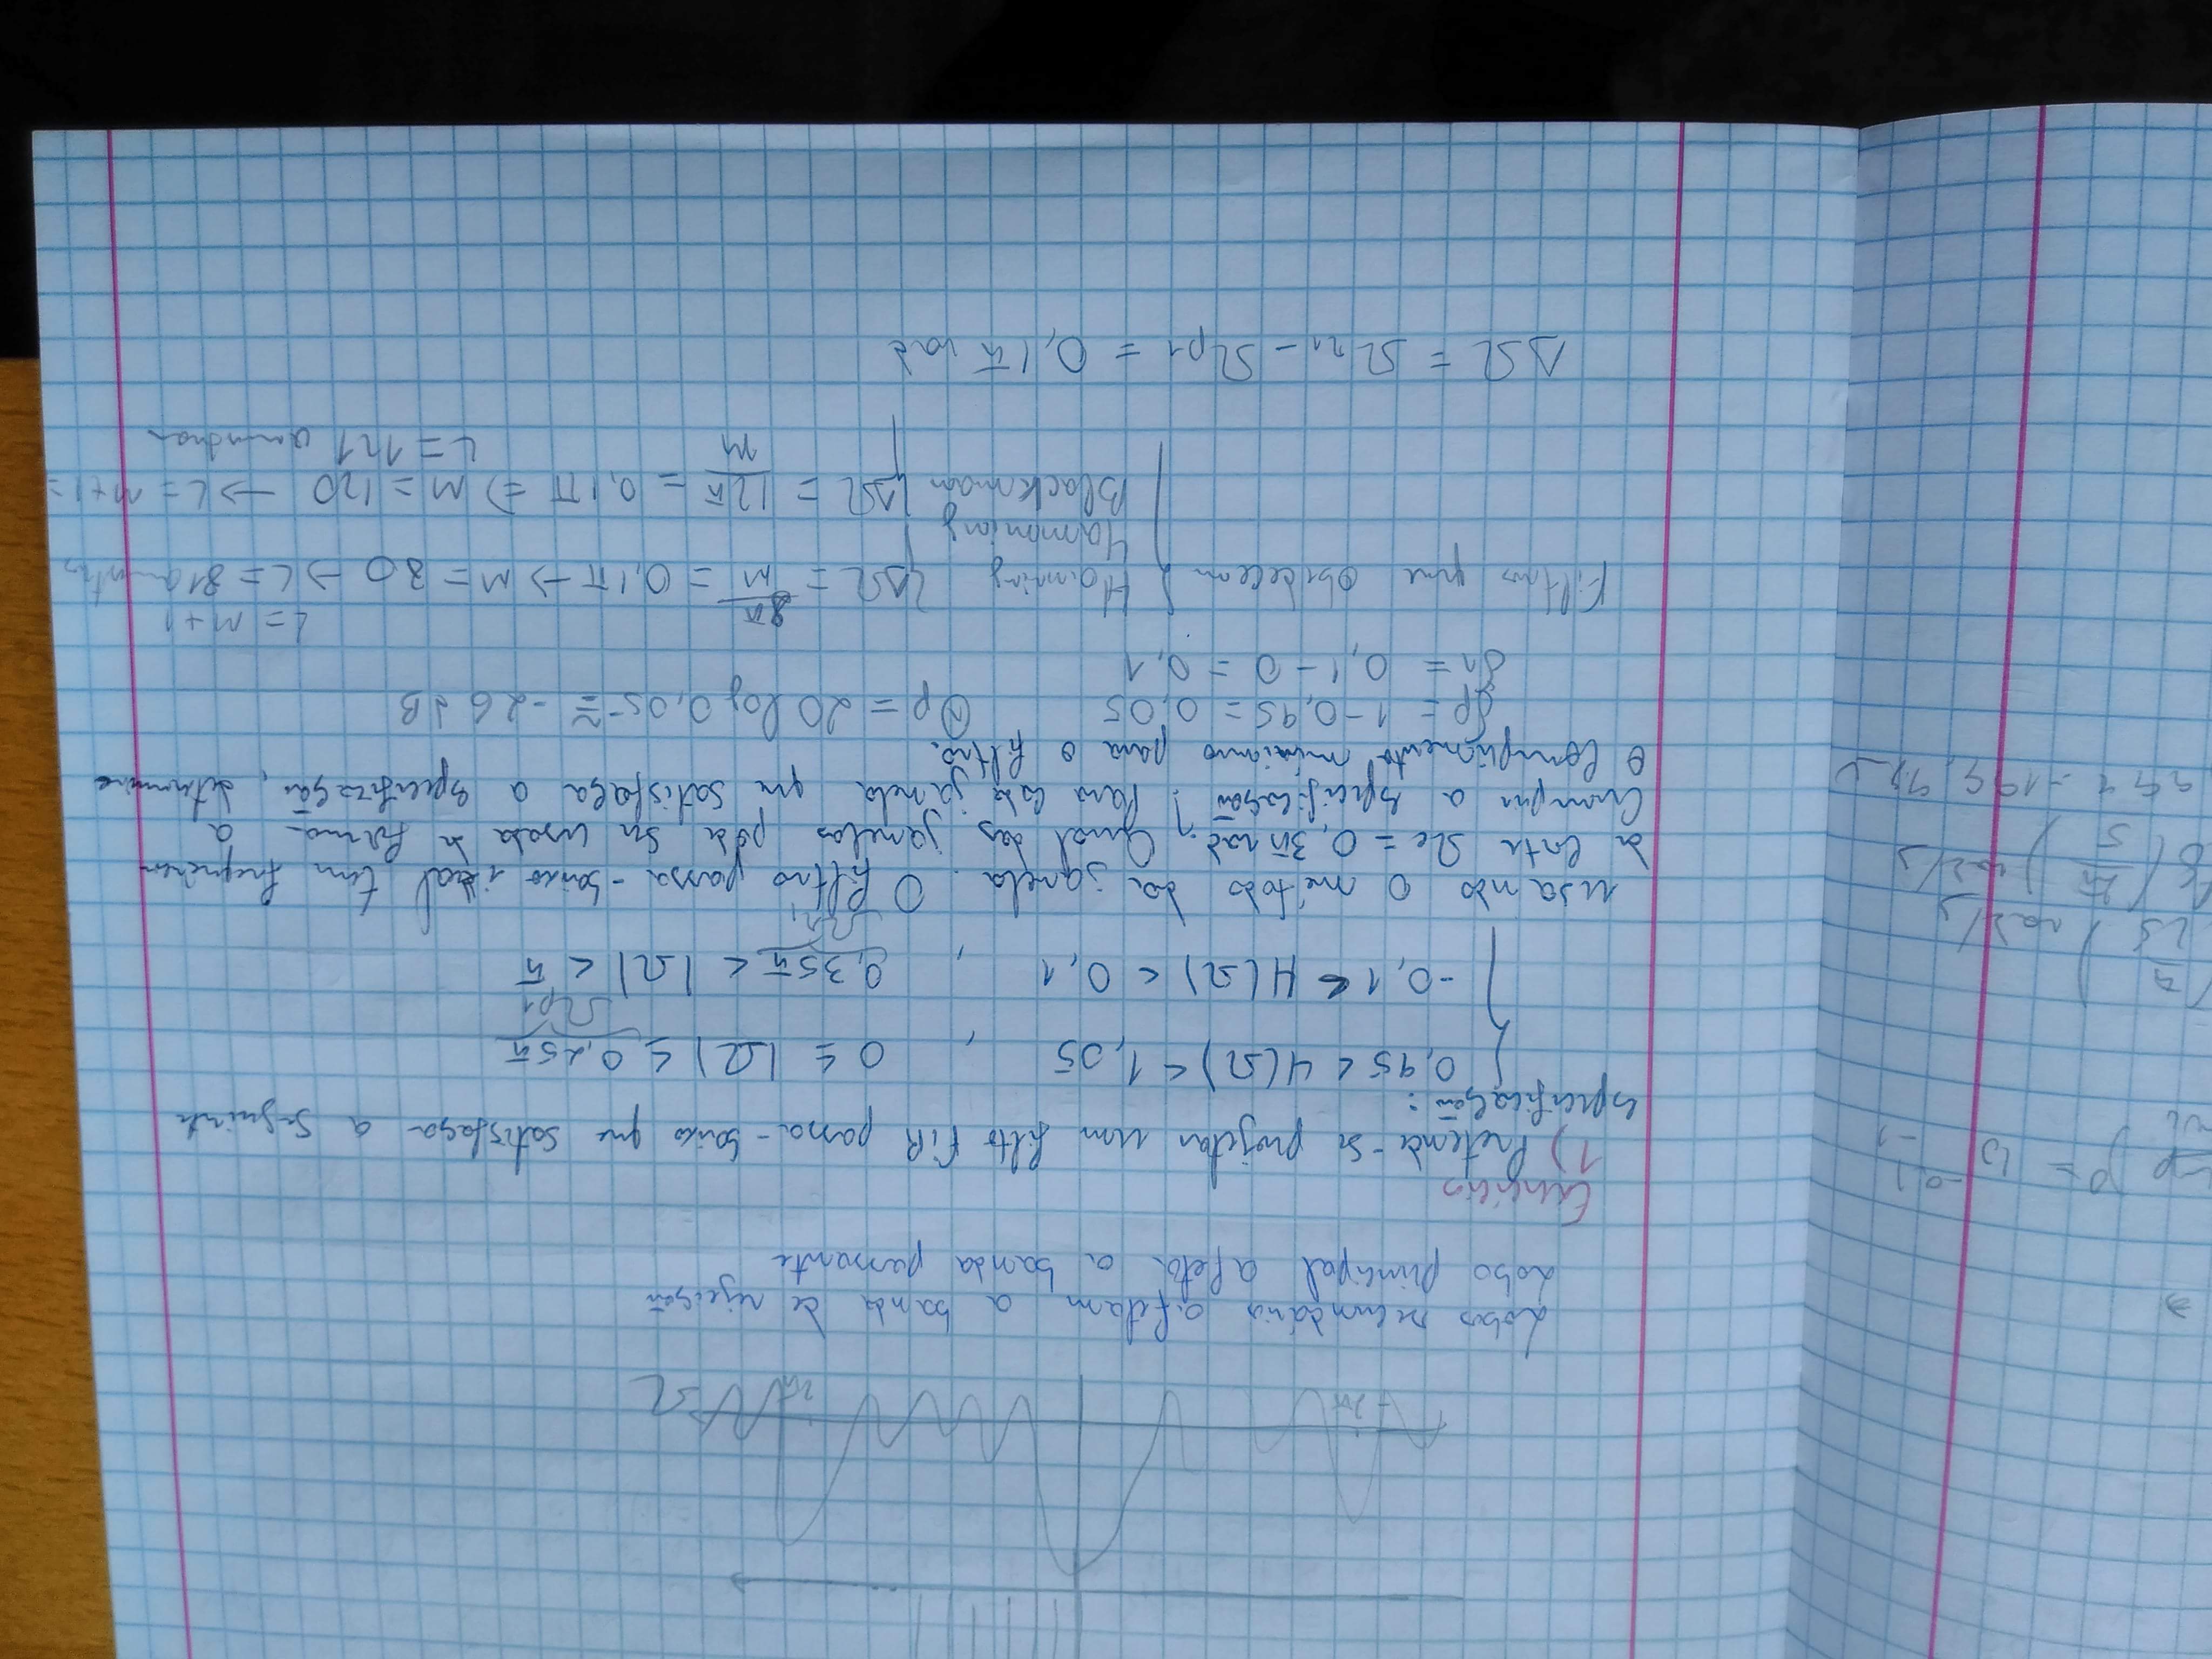 -2π
2π
Ω
Lobos secundários afetam a banda de rejeição
Lobo principal afeta a banda passante
Exercícios
1) Pretende-se projetar um filtro FIR passa-baixo que satisfaça a seguinte
especificação:
0,95 < H(Ω) < 1,05 , 0 ≤ |Ω| ≤ 0,25π
Ωp1
-0,1 < H(Ω) < 0,1 , 0,35π < |Ω| < π
Ωr1
usando o método da janela. O filtro passa-baixo ideal tem frequência
de corte Ωc = 0,3π rad. Qual das janelas pode ser usada de forma a
cumprir a especificação? Para cada janela que satisfaça a especificação, determine
o comprimento mínimo para o filtro.
δp = 1-0,95 = 0,05 Ap = 20 log 0,05 ≅ -26 dB
δr = 0,1 - 0 = 0,1
L = M+1
Filtros que obedecem { Hanning ΔΩ = 8π/M = 0,1π → M = 80 → L = 81 amostras
Hamming
Blackman ΔΩ = 12π/M = 0,1π ⇒ M = 120 → L = M+1 =
L = 121 amostras
ΔΩ = Ωr1 - Ωp1 = 0,1π rad